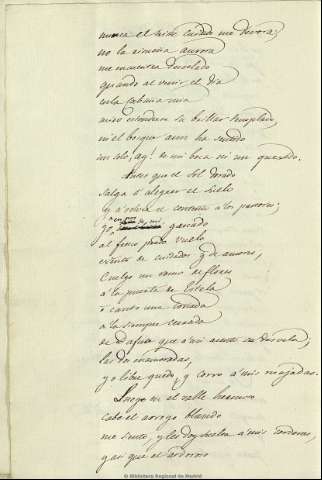 nunca el triste cuidado me devora;
no la risueña aurora
me encuentra desvelado
quando al venir el dia
en la cabaña mia
miro estenderse su brillar templado,
ni el bosque aun ha sentido
un solo, ay! de mi boca ni un quexido.
Antes que el Sol dorado
salga á alegrar el suelo
y á volver el contento á los pastores;
yo, ganado
al fresco vuelo
exento de cuidados y de amores,
Cuelgo un ramo de flores
á la puerta de Estela
ó canto una tonada
á la siempre
de Dafne que á mi acento se desvela,
las dos enamoradas,
y o libre quedo, y corro á mis majadas.
Luego en el valle hermoso
Cabe el arroyo blando
me siento, y les doy suelta á mis corderos,
y as que el ardoroso
© Biblioteca Regional de Madrid